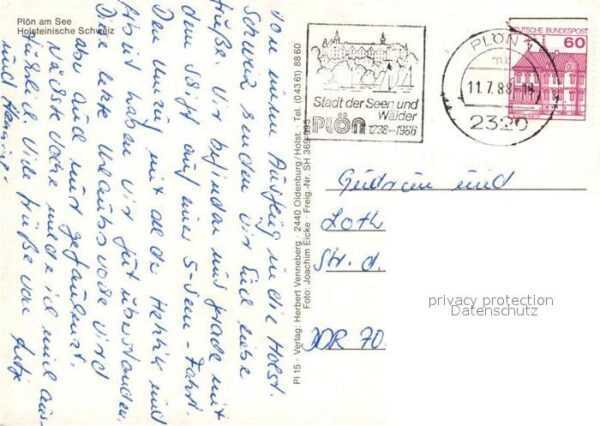 Plön am See
Holsteinische Schweiz
Von einem Ausflug in die Holst.
Schweiz senden wir Euch liebe
Grüße. Wir befinden uns gerade mit
dem Schiff auf einer 5-Seen-Fahrt.
Den Umzug mit all der Hektik und
Arbeit haben wir gut überstanden.
Diese letzte Urlaubswoche wird
aber auch noch gefaulenzt.
Nächste Woche melde ich mich aus-
führlich. Viele Grüße von
und
Pl 15 · Verlag: Herbert Venneberg · 2440 Oldenburg/Holst. · Tel. (04361) 8860
Foto: Joachim Eicke · Freig.-Nr. SH 369-395
Stadt der Seen und
Wälder
PLÖN 1236–1986
PLÖN 1
11.7.88-18
2320
DEUTSCHE BUNDESPOST
60
Gudrun und
Loth
Str. d.
DDR 70
privacy protection
Datenschutz